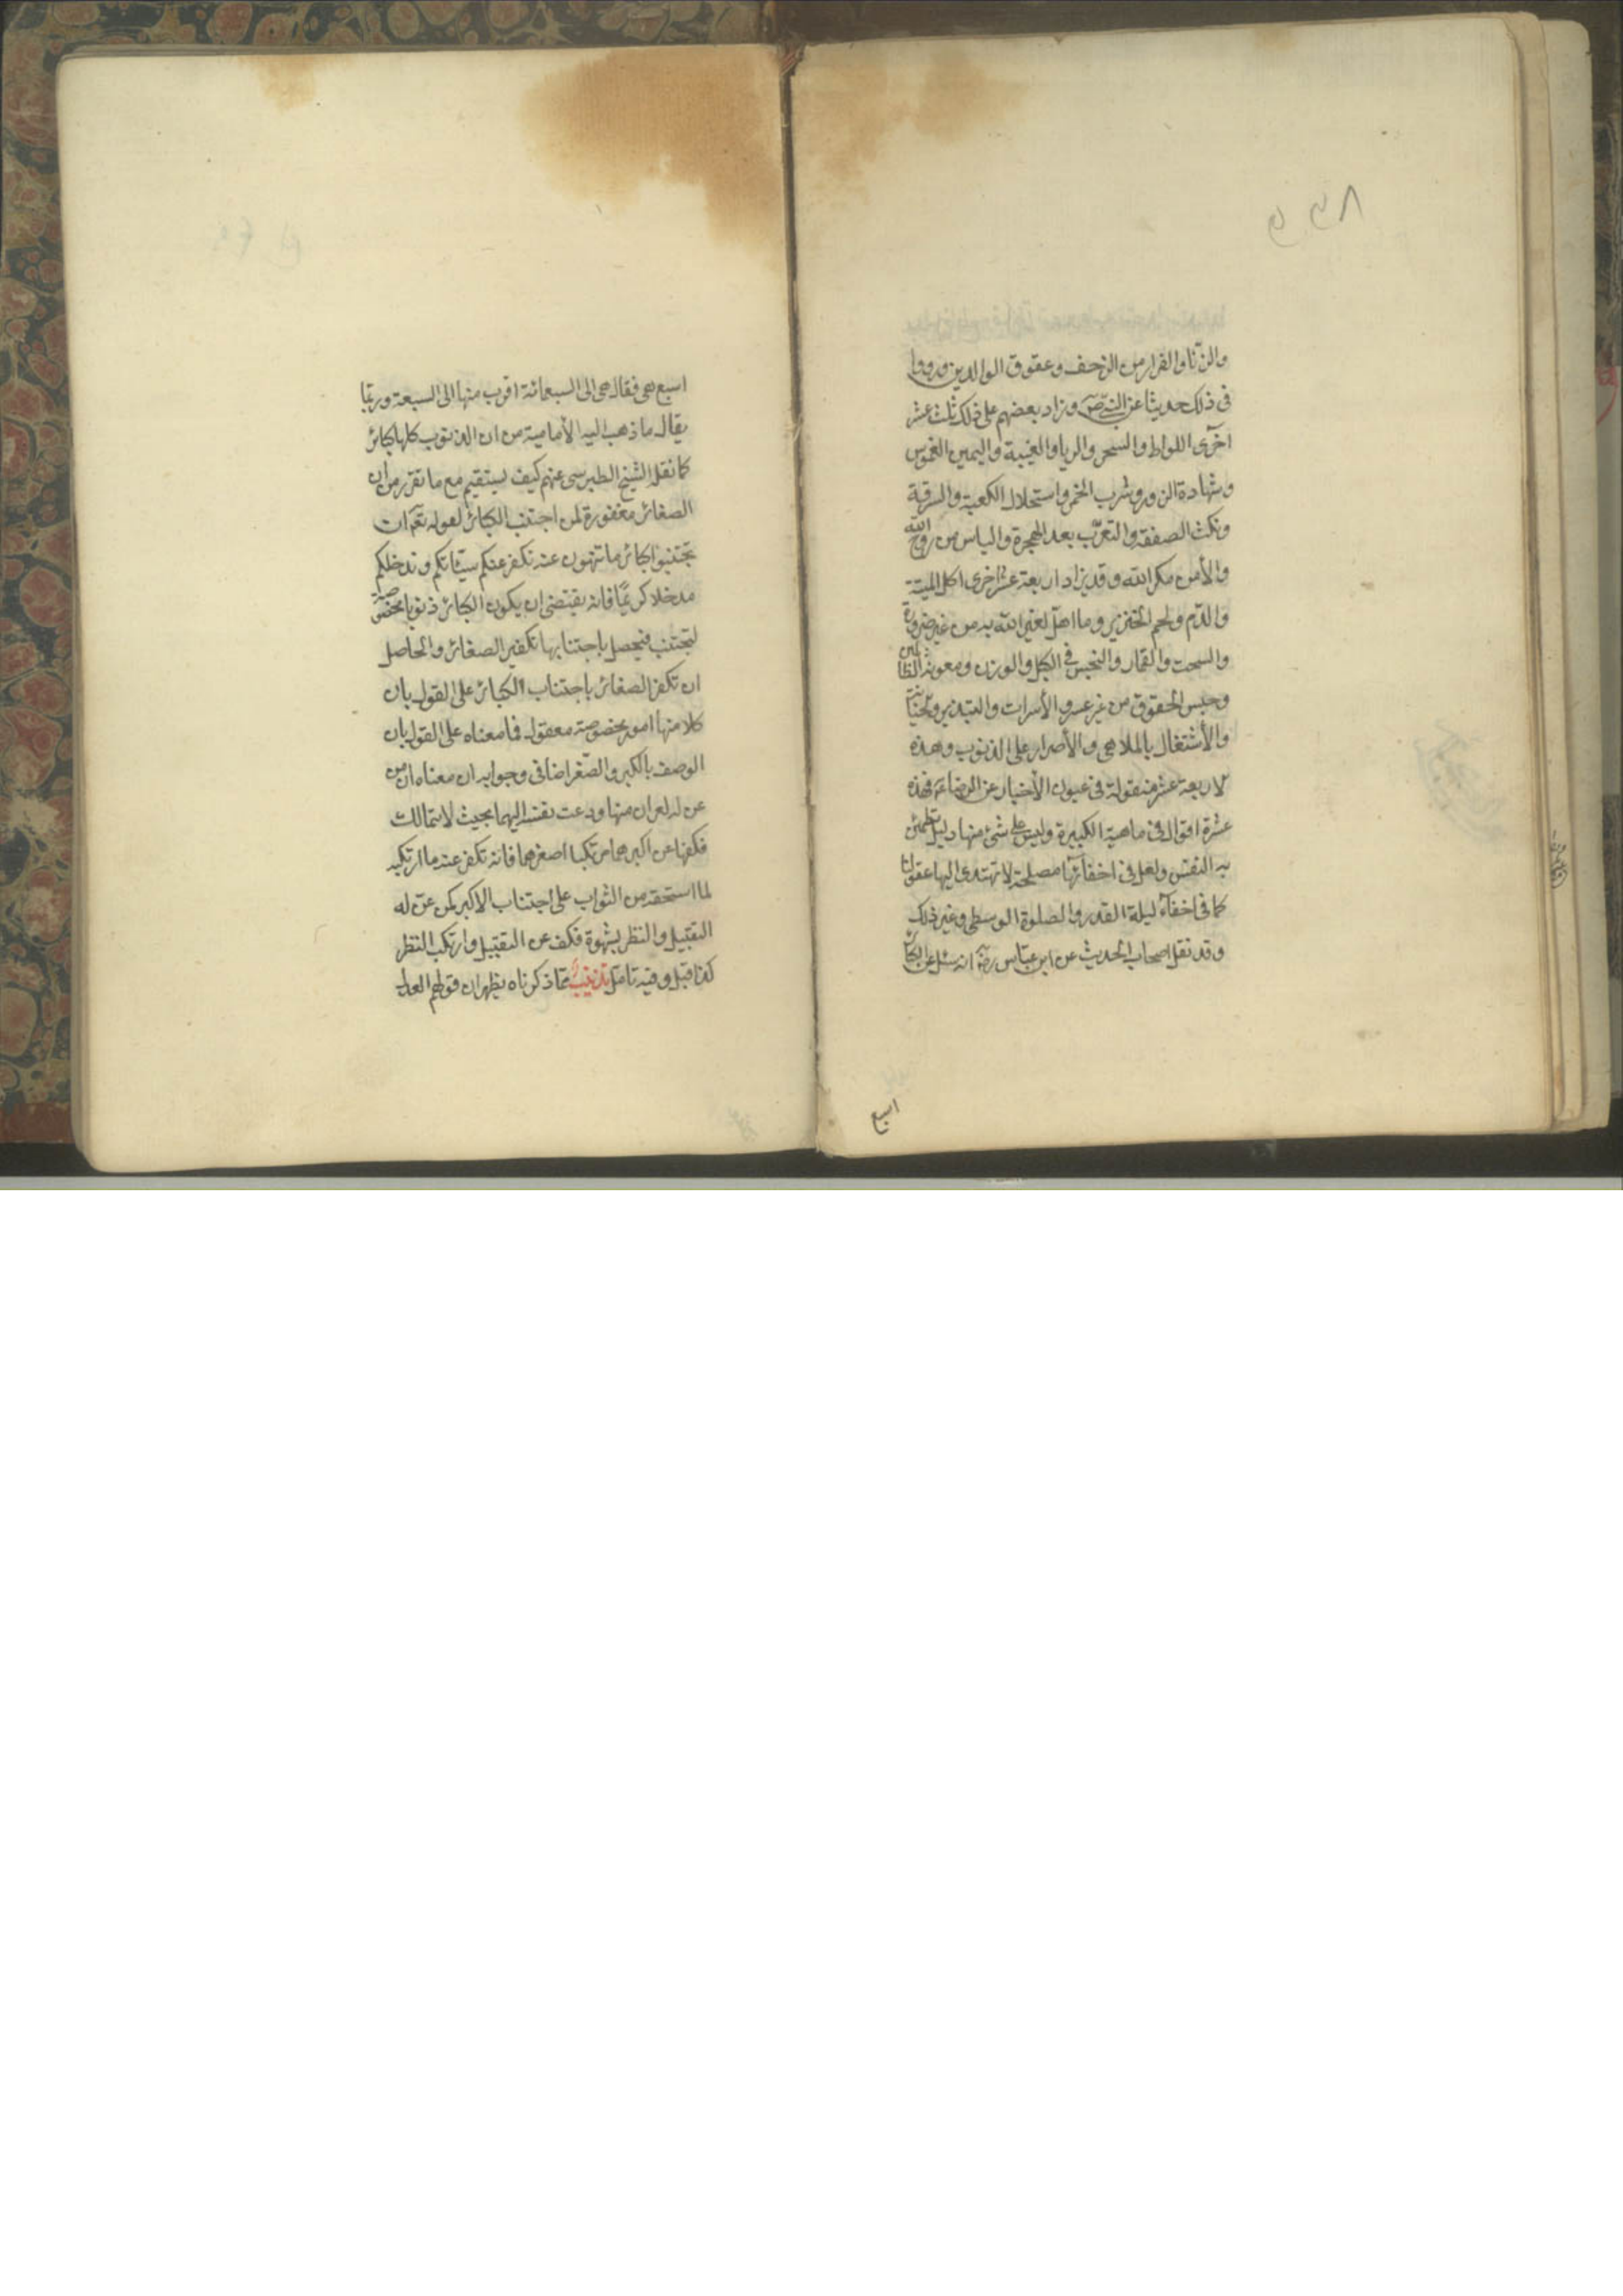 والزنا والفرار من الزحف وعقوق الوالدين ورووا
فى ذلك حديثا عن النبي ص وزاد بعضهم على ذلك ثلث عشر
اخرى اللواط والسحر والربا والغيبة واليمين الغموس
وشهادة الزور وشرب الخمر واستحلال الكعبة والسرقة
ونكث الصفقة والتعرّب بعد الهجرة والياس من روح الله
والأمن مكر الله وقد يزاد اربعة عشر اخرى اكل الميتة
والدّم ولحم الخنزير وما اهلّ لغير الله به من غير ضرورة
والسحت والقمار والبخس فى الكيل والوزن ومعونة الظالمين
وحبس الحقوق من غير عسر والأسراف والتبذير والخيانة
والأشتغال بالملاهى والأصرار على الذنوب وهذه
لاربعة عشر منقولة فى عيون الأخبار عن الرضا ع فهذه
عشرة اقوال فى ماهية الكبيرة وليس على شئ منها دليل تطمئن
به النفس ولعل فى اخفائها مصلحة لا تهتدى اليها عقولنا
كما فى اخفآء ليلة القدر والصلوة الوسطى وغير ذلك
وقد نقل اصحاب الحديث عن ابن عباس رضه انه سئل عن الكبائر
اسبع
اسبع هى فقال هى الى السبعمائة اقرب منها الى السبعة وربّما
يقال ما ذهب اليه الأمامية من ان الذنوب كلها كبائر
كما نقله الشيخ الطبرسى عنهم كيف يستقيم مع ما تقرر من ان
الصغائر مغفورة لمن اجتنب الكبائر لقوله تعم ان
تجتنبوا كبائر ما تنهون عنه نكفر عنكم سيئاتكم وندخلكم
مدخلا كريمًا فانه يقتضى ان يكون الكبائر ذنوبا مخصوصة
لتجتنب فيحصل باجتنابها تكفير الصغائر والحاصل
ان تكفر الصغائر باجتناب الكبائر على القول بان
كلا منها امور مخصوصة معقول فما معناه على القول بان
الوصف بالكبر والصّغر اضافى وجوابه ان معناه ان من
عن له امران منها ودعت نفسه اليهما بحيث لا يتمالك
فكفها عن اكبرهما مرتكبا اصغرهما فانه تكفر عنه ما ارتكبه
لما استحقه من الثواب على اجتناب الاكبر كمن عنّ له
التقبيل والنظر بشهوة فكف عن التقبيل وارتكب النظر
كذا قيل وفيه تامل تذنيب ممّا ذكرناه يظهر ان قولهم العدل